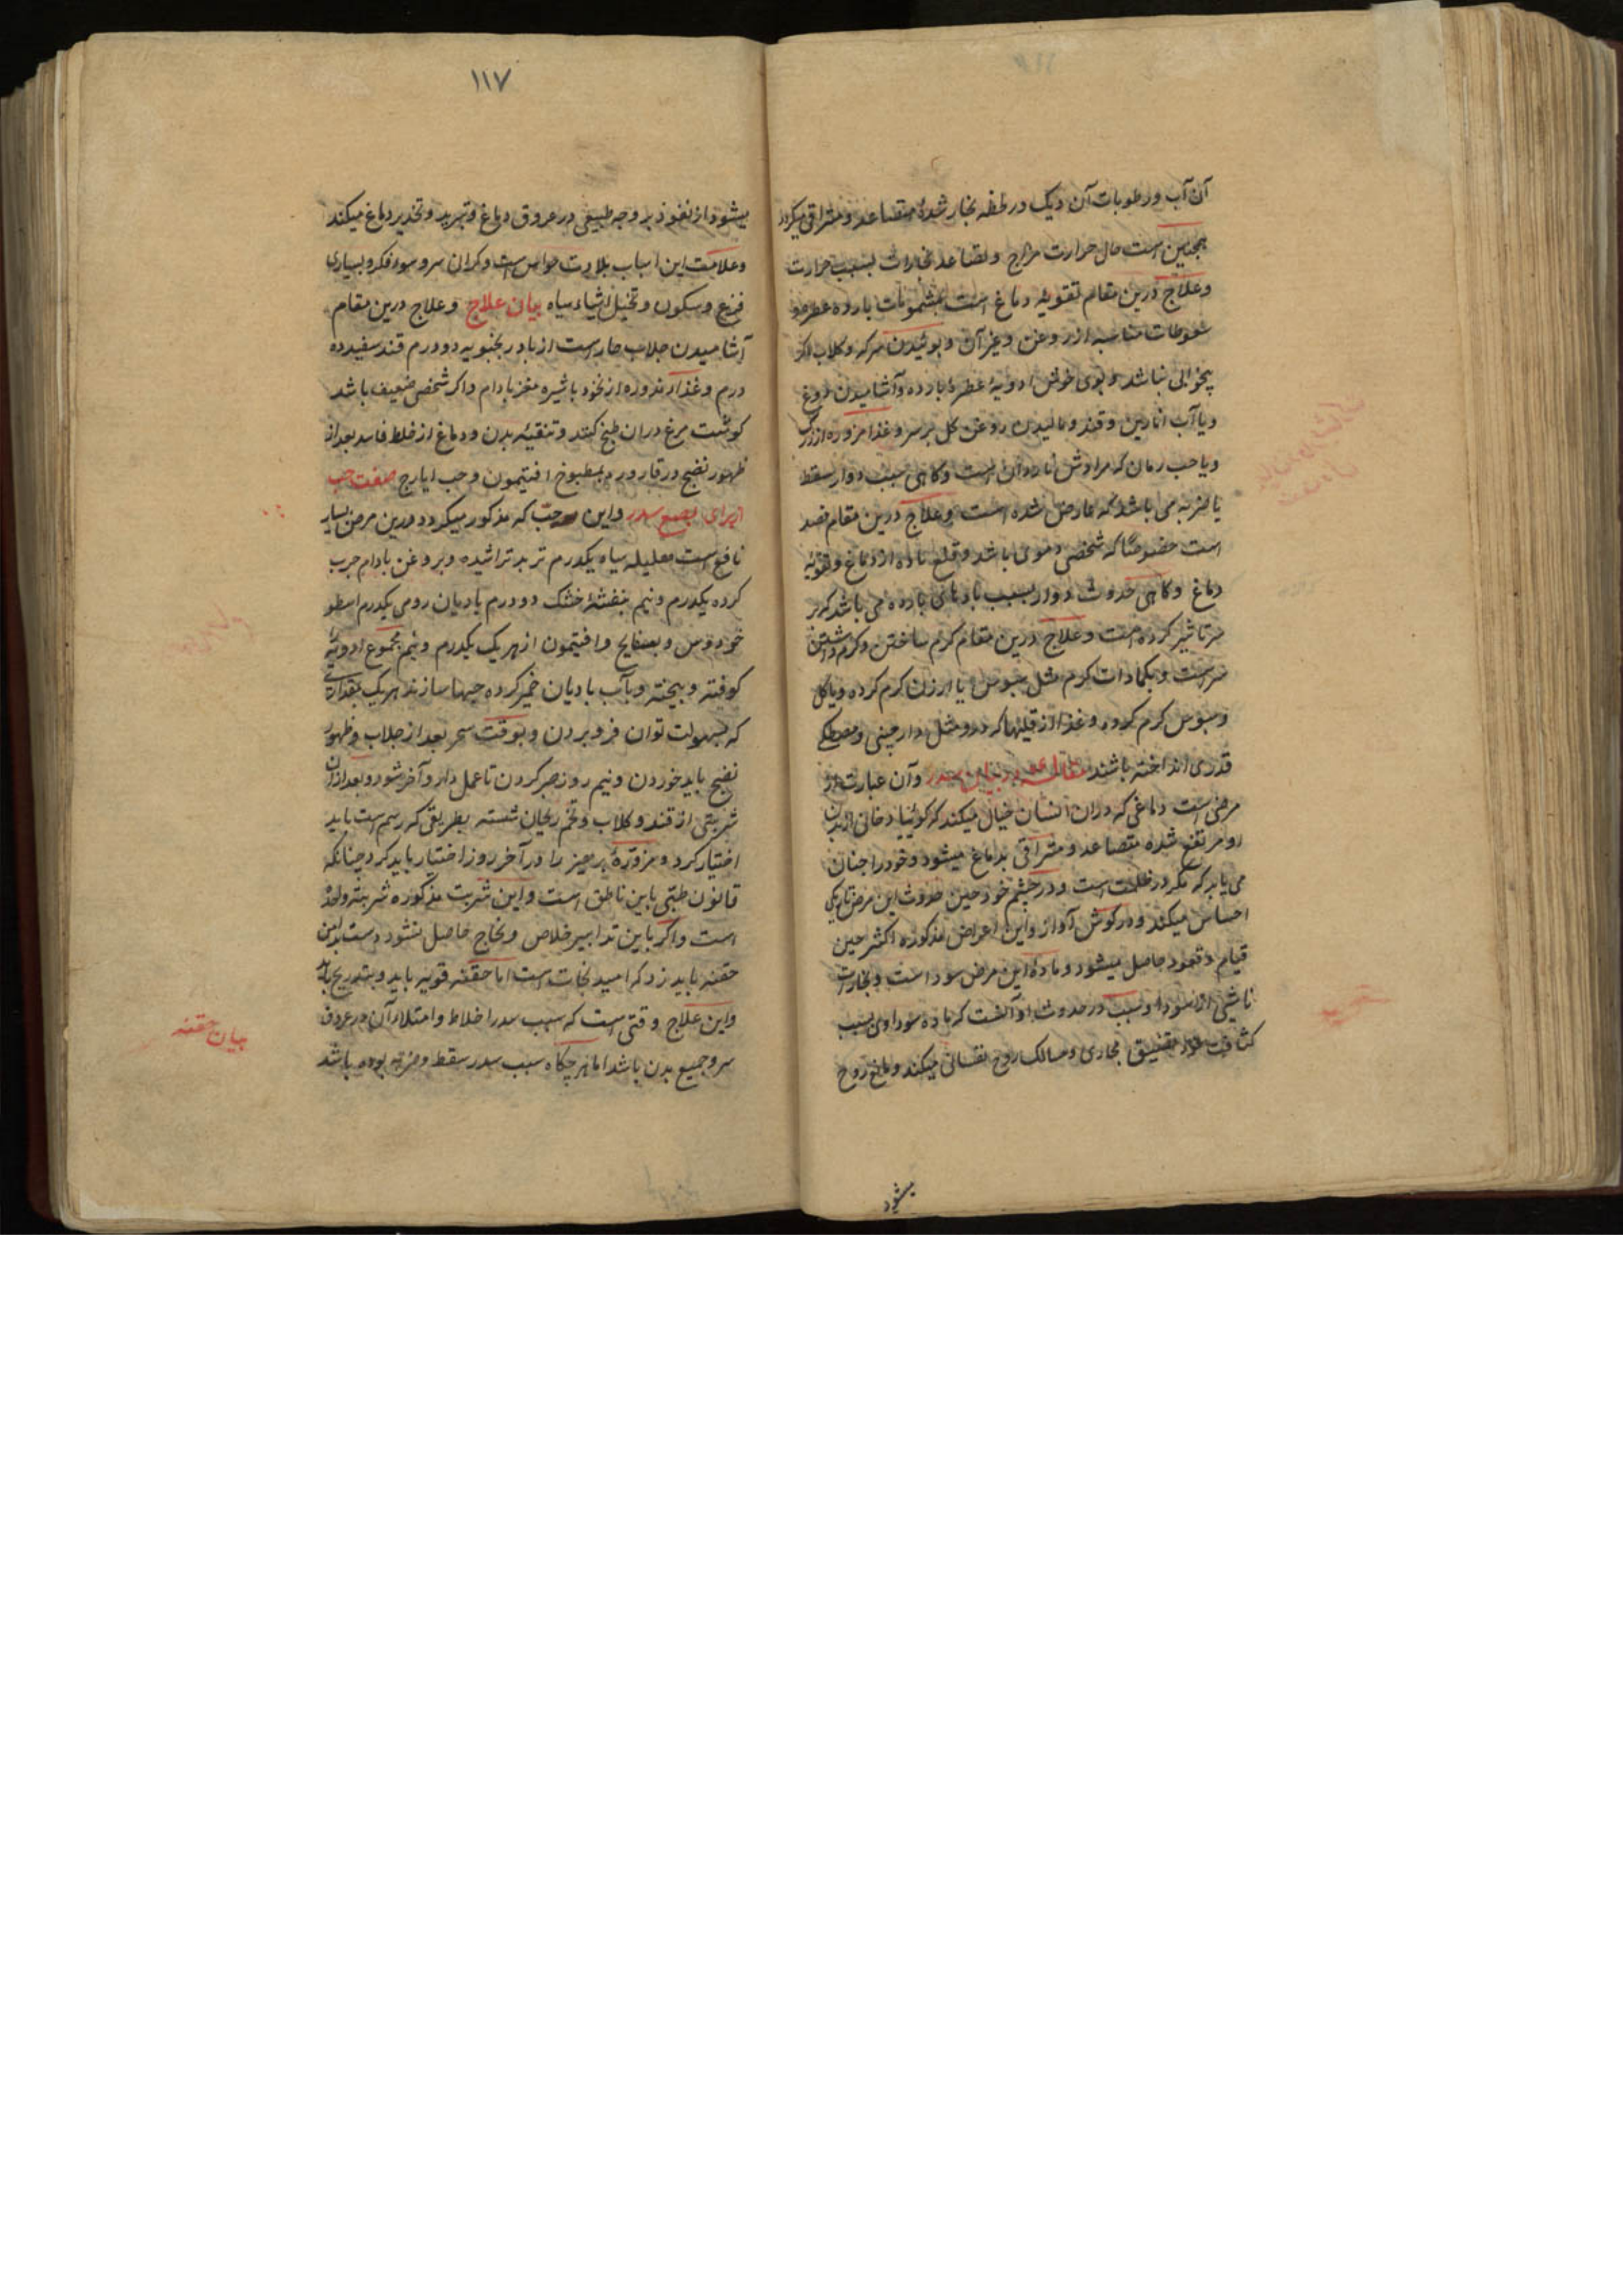 آن آب و رطوبات آن دیک در لحظه بخار شده متصاعد و متراقی میکردد
همچنین است حال حرارت مزاج و تصاعد بخارات بسبب حرارت
وعلاج درین مقام تقویه دماغ است بمشمومات بارده عطره و
سعوطات مناسبه از روغن وغیر آن وبوئیدن سرکه وکلاب اکر
بیخوابی نباشد وبوی خوش ادویهٔ عطرهٔ بارده وآشامیدن دوغ
ویا آب انارین وقند ومالیدن روغن کل بر سر وغذا مزوره از زرشک
ویا حب رمان که مرادش ناردانه است وکاهی سبب دوار سقطه
یا ضربه می باشد که عارض شده است وعلاج درین مقام فصد
است خصوصًا که شخص دموی باشد وقلع ماده از دماغ وتقویهٔ
دماغ وکاهی حدوث دوار بسبب بادهای بارده می باشد که بر
سر تاثیر کرده است وعلاج درین مقام کرم ساختن وکرم داشتن
سر است وبکمادات کرم مثل سبوس یا ارزن کرم کرده ویا کل
وسبوس کرم کرده وغذا از قلیها که درو مثل دارچینی ومصطکی
قدری انداخته باشند مقاله در بیان سدر وآن عبارت از
مرضی است دماغی که دران انسان خیال میکند که کوئیا دخانی از بدن
او مرتفع شده متصاعد ومتراقی بدماغ میشود وخود را چنان
می یابد که مکر در ظلمت است ودر چشم خود حین حدوث این مرض تاریکی
احساس میکند ودر کوش آواز واین اعراض مذکوره اکثر حین
قیام وقعود حاصل میشود ومادهٔ این مرض سودا است وبخارات
ناشی از سودا وسبب در حدوث او آنست که ماده سوداوی بسبب
کثافت خود تضییق مجاری ومسالک روح نفسانی میکند ومانع روح
میشود
١١٧
میشود از نفوذ بر وجه طبیعی در عروق دماغ وتبرید وتخدیر دماغ میکند
وعلامت این اسباب بلادت حواس است وکران سر وسوء فکر وبسیاری
فزع وسکون وتخیل اشیاء سیاه بیان علاج وعلاج درین مقام
آشامیدن جلاب حار است از بادرنجنبویه دو درم قند سفید ده
درم وغذا مزوره از نخود با شیره مغز بادام واکر شخص ضعیف باشد
کوشت مرغ دران طبخ کنند وتنقیهٔ بدن ودماغ از خلط فاسد بعد از
ظهور نضج در قاروره بمطبوخ افتیمون وحب ایارج صفت حب
از برای سدر واین حب که مذکور میکردد درین مرض بسیار
نافع است هلیله سیاه یکدرم تربد تراشیده وبروغن بادام چرب
کرده یکدرم ونیم بنفشهٔ خشک دو درم بادیان رومی یکدرم اسطو
خودوس وبسفایج وافتیمون از هر یک یکدرم ونیم مجموع ادویهٔ
کوفته وبیخته وبآب بادیان خمیر کرده حبها سازند هر یک بمقداری
که بسهولت توان فرو بردن وبوقت سحر بعد از جلاب وظهور
نضج باید خوردن ونیم روز صبر کردن تا عمل دارو آخر شود وبعد ازان
شربتی از قند وکلاب وتخم ریحان شسته بطریقی که رسم است باید
اختیار کرد ومزورهٔ پرهیز را در آخر روز اختیار باید کرد چنانکه
قانون طبی باین ناطق است واین شربت مذکوره شربته واحد
است واکر باین تدابیر خلاص ونجاح حاصل نشود دست بدامن
حقنه باید زد که امید نجات است اما حقنه قویه باید وبتدریج باید
واین علاج وقتی است که سبب سدر اخلاط وامتلاء آن در عروق
سر وجمیع بدن باشد اما هر چکاه سبب سدر سقطه وضربه بوده باشد
بیان حقنه